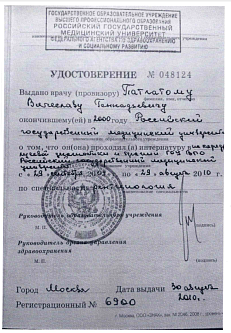 ГОСУДАРСТВЕННОЕ ОБРАЗОВАТЕЛЬНОЕ УЧРЕЖДЕНИЕ
ВЫСШЕГО ПРОФЕССИОНАЛЬНОГО ОБРАЗОВАНИЯ
РОССИЙСКИЙ ГОСУДАРСТВЕННЫЙ
МЕДИЦИНСКИЙ УНИВЕРСИТЕТ
ФЕДЕРАЛЬНОГО АГЕНТСТВА ПО ЗДРАВООХРАНЕНИЮ
И СОЦИАЛЬНОМУ РАЗВИТИЮ
УДОСТОВЕРЕНИЕ № 048124
Выдано врачу (провизору)
Вячеславу Геннадьевичу
окончившему(ей) в 2000 году Российский
государственный медицинский университет
о том, что он(она) проходил(а) интернатуру на
лучевой диагностики и терапии ГОУ ВПО
Российский государственный медицинский
университет
по 29 августа 2010 г.
по специальности рентгенология
Руководитель образовательного учреждения
М.П.
Руководитель органа управления
здравоохранения
М.П.
Город Москва Дата выдачи 30 август
Регистрационный № 6960 2010г.